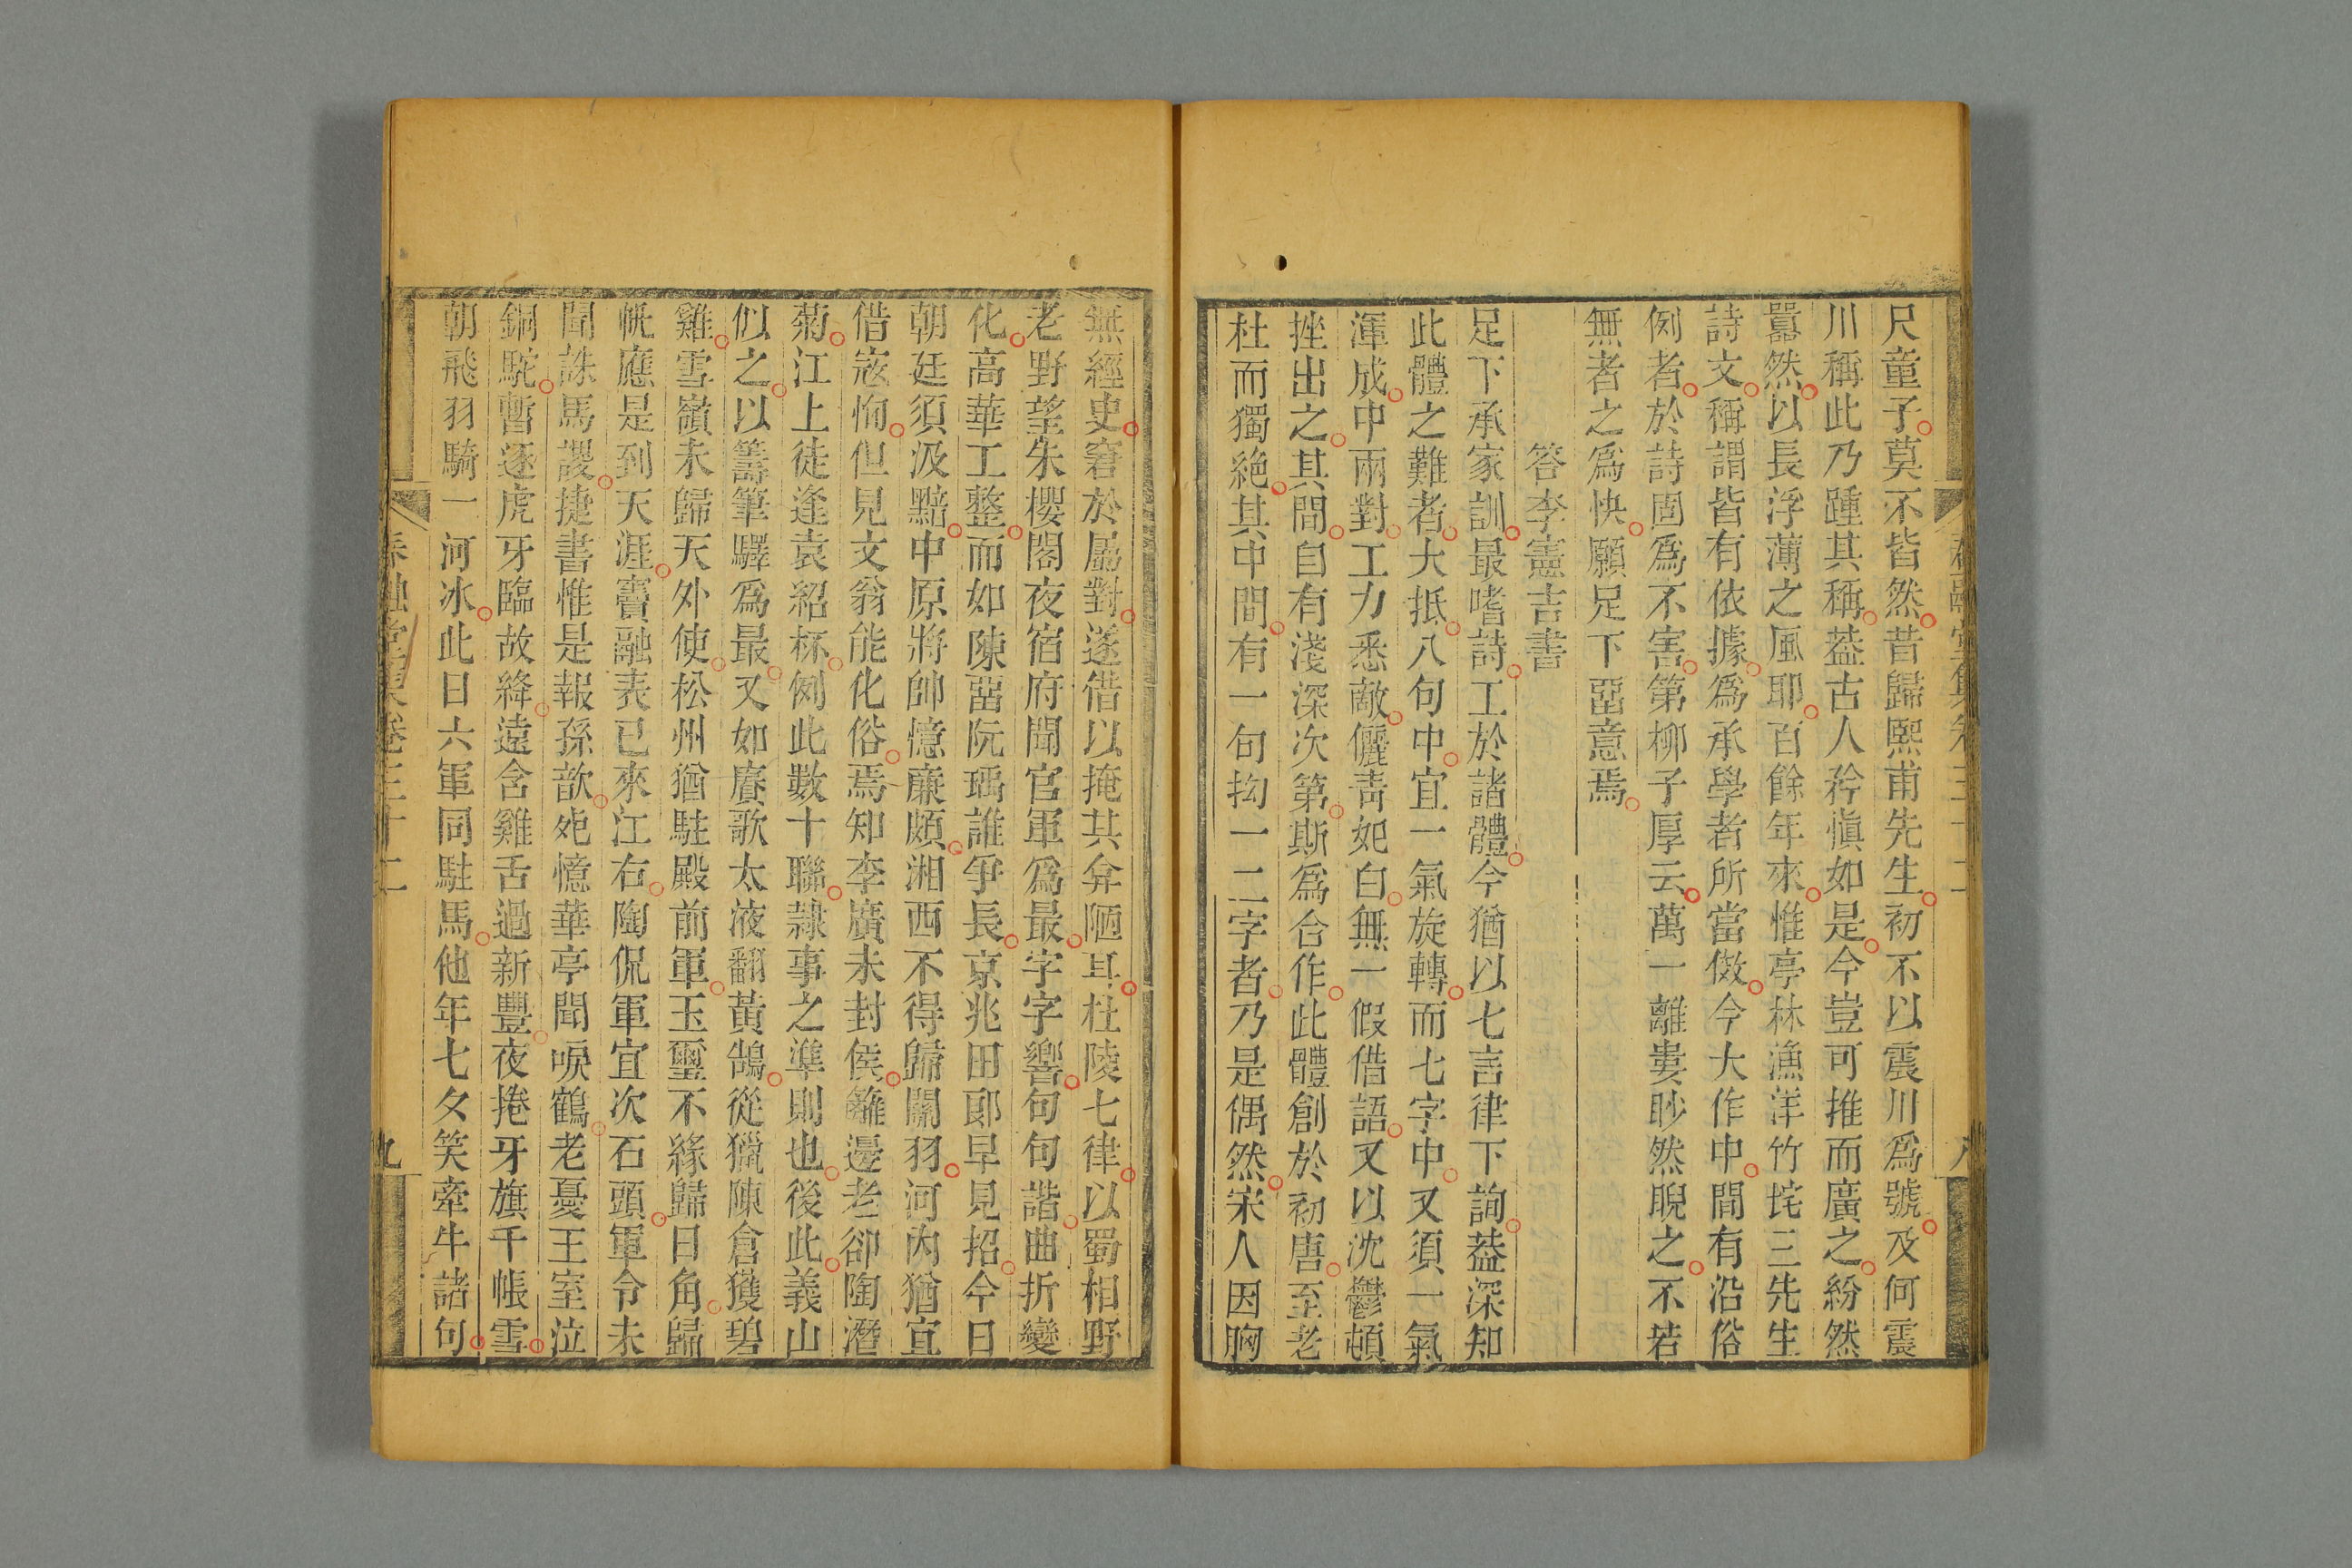 尺童子莫不皆然昔歸熙甫先生初不以震川爲號及何震
川稱此乃踵其稱葢古人矜慎如是今豈可推而廣之紛然
囂然以長浮薄之風耶百餘年來惟亭林漁洋竹垞三先生
詩文稱謂皆有依據爲承學者所當倣今大作中間有沿俗
例者於詩固爲不害第柳子厚云萬一離婁眇然睨之不若
無者之爲快願足下畱意焉
答李憲吉書
足下承家訓最嗜詩工於諸體今猶以七言律下詢葢深知
此體之難者大抵八句中宜一氣旋轉而七字中又須一氣
渾成中兩對工力悉敵儷靑妃白無一假借語又以沈鬱頓
挫出之其間自有淺深次第斯爲合作此體創於初唐至老
杜而獨絕其中間有一句拗一二字者乃是偶然宋人因胸
無經史窘於屬對遂借以掩其弇陋耳杜陵七律以蜀相野
老野望朱櫻閣夜宿府聞官軍爲最字字響句句諧曲折變
化高華工整而如陳畱阮瑀誰爭長京兆田郎早見招今日
朝廷須汲黯中原將帥憶廉頗湘西不得歸關羽河內猶宜
借寇恂但見文翁能化俗焉知李廣未封侯籬邊老卻陶潛
菊江上徒逢袁紹杯例此數十聯隷事之準則也後此義山
似之以籌筆驛爲最又如賡歌太液翻黃鵠從獵陳倉獲碧
雞雪嶺未歸天外使松州猶駐殿前軍玉璽不緣歸日角歸
帆應是到天涯竇融表已來江右陶侃軍宜次石頭軍令未
聞誅馬謖捷書惟是報孫歆死憶華亭聞唳鶴老憂王室泣
銅駝暫逐虎牙臨故絳遠含雞舌過新豐夜捲牙旗千帳雪
朝飛羽騎一河冰此日六軍同駐馬他年七夕笑牽牛諸句